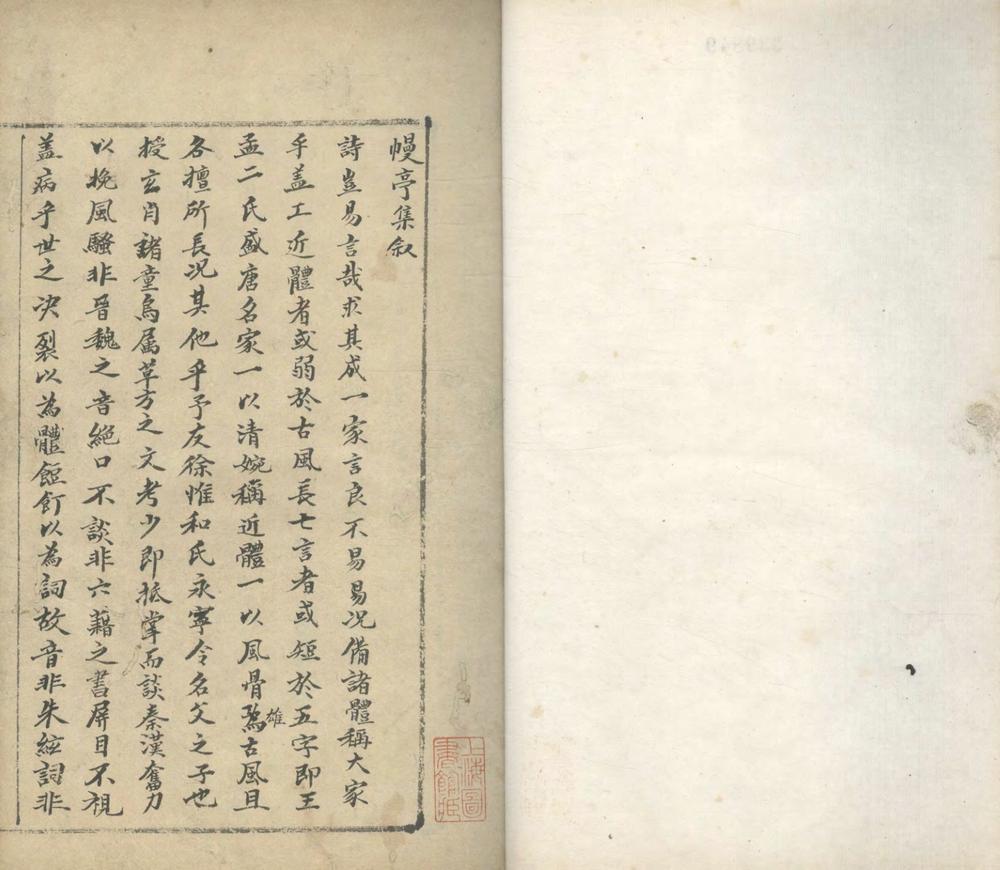 幔亭集叙
詩豈易言哉求其成一家言良不易易况備諸體稱大家
乎盖工近體者或弱於古風長七言者或短於五字即王
孟二氏盛唐名家一以清婉稱近體一以風骨雄古風且
各擅所長况其他乎予友徐惟和氏永寧令名父之子也
授玄肖諸童烏属草方之文考少即抵掌而談秦漢奮力
以挽風騷非晉魏之音絶口不談非六籍之書屏目不視
盖病乎世之决裂以為體飣以為詞故音非朱絃詞非
上海圖書館藏